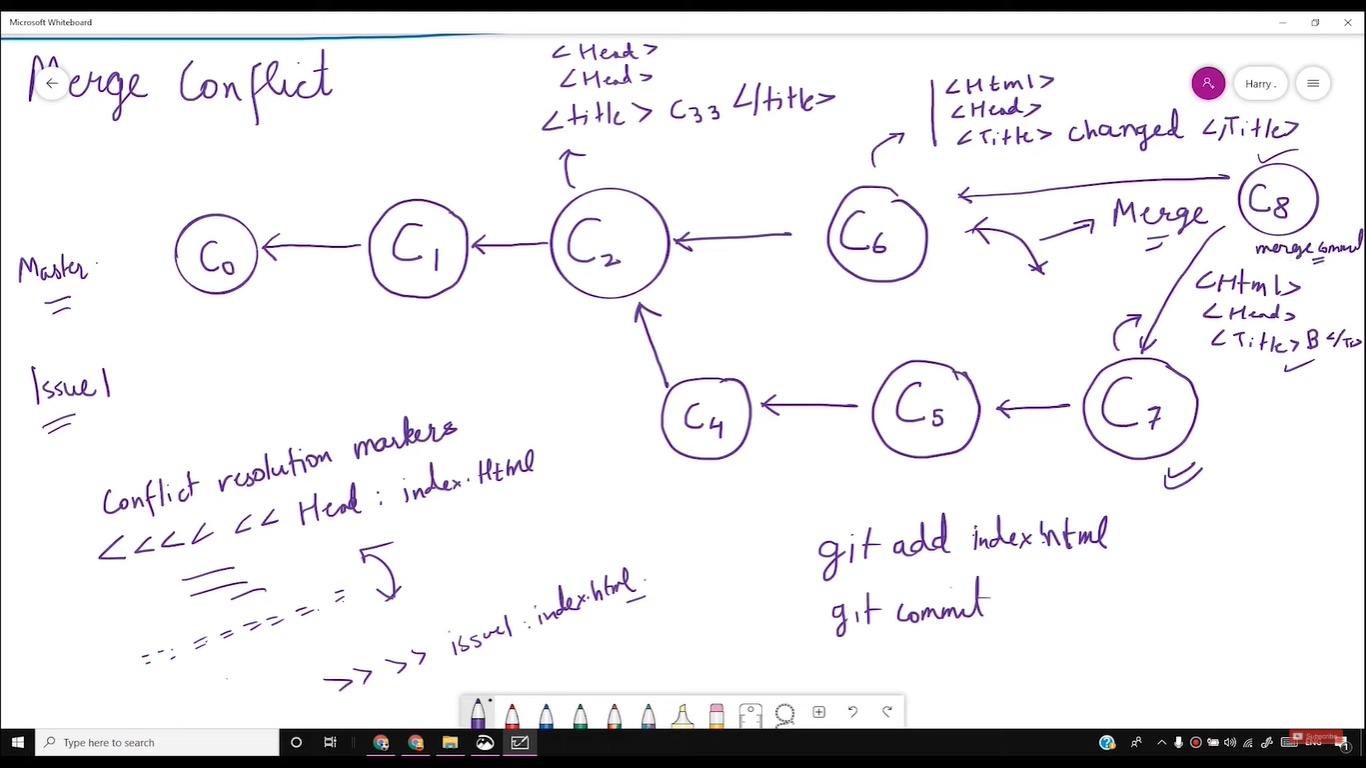 Microsoft Whiteboard
Merge Conflict
<Head>
<Head>
<title> C33 </title>
<Html>
<Head>
<Title> changed </Title>
Harry .
C8
merge commit
Merge
C6
C2
C1
C0
Master
<Html>
<Head>
<Title> B </Tit
Issue1
C4
C5
C7
Conflict resolution markers
<<<< << Head : index.Html
== ======
>>>> issue1 : index.html
git add index.html
git commit
Type here to search
Subscribe
ENG
1